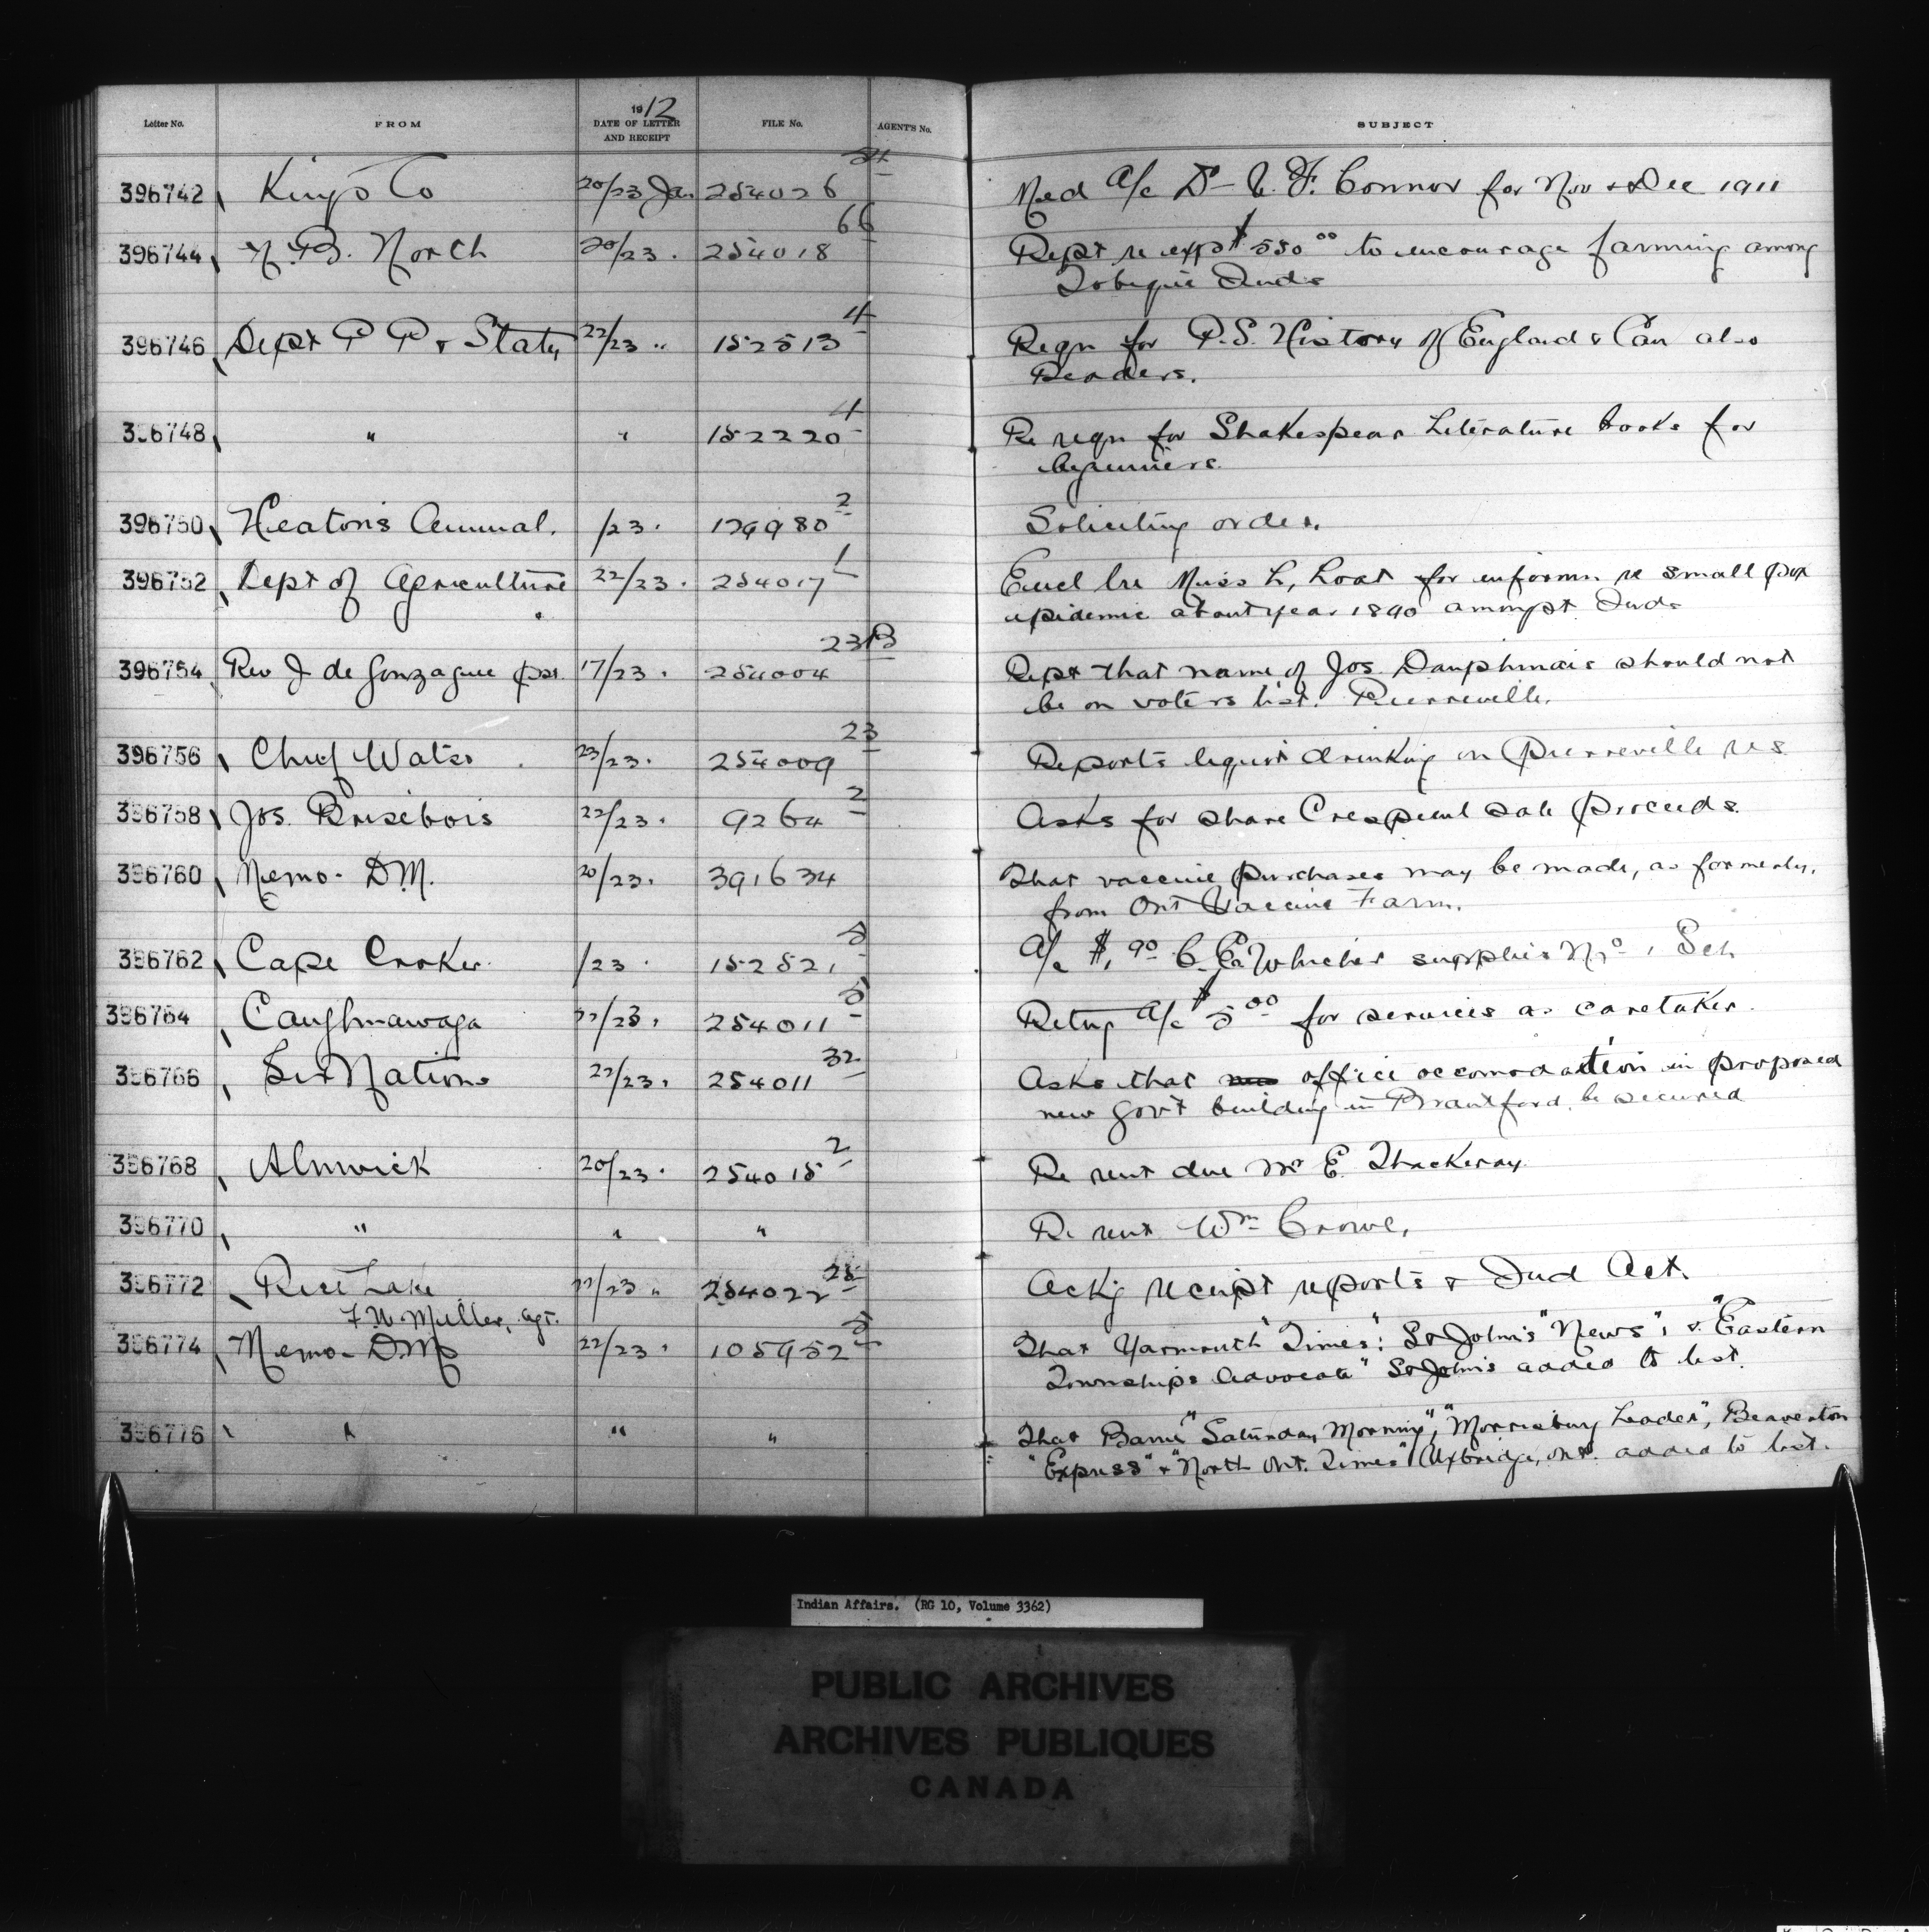 Letter No. FROM 1912 DATE OF LETTER AND RECEIPT FILE No. AGENT'S No. SUBJECT
396742 Kings Co 20/23 Jan 254026 Med a/c Dr F. Connor for Nov & Dec 1911
396744 N.B. North 20/23. 254018 66 Rept re exp $550 00 to encourage farming among
Tobique Inds
396746 Dept P P & Staty 22/23 " 152513 4 Reqn for P.S. History of England & Can also
Readers.
396748 " " 152220 4 Re reqn for Shakespear Literature books for
beginners.
396750 Heaton's Annual. /23. 179980 2 Soliciting order.
396752 Dept of Agriculture 22/23. 254017 1 Encl lre Miss L, for informn re small pox
epidemic about year 1890 amongst Inds
396754 Rev J de Gonzague pst. 17/23. 254004 23B Rept that name of Jos. Dauphinais should not
be on voters list. Pierreville.
396756 Chief Watso 23/23. 254009 23 Reports liquor drinking on Pierreville res
396758 Jos. Brisebois 22/23. 9264 2 Asks for share Crespieul sale proceeds.
396760 Memo- DM. 20/23. 391634 That vaccine purchases may be made, as formerly,
from Ont Vaccine Farm.
396762 Cape Croker /23. 152521 5 a/c $1.90 supplies No 1 Sch
396764 Caughnawaga 22/23. 254011 5 Retng a/c $5 00 for services as caretaker.
396766 Six Nations 22/23. 254011 32 Asks that office accomodation in proposed
new Gov't building in Brantford be secured
396768 Alnwick 20/23. 254015 2 Re rent due Mr E. Thackeray.
396770 " " " Re rent Wm Crowe.
396772 Rice Lake 22/23 " 254022 Ackg receipt reports & Ind Act.
F.W. Muller, agt.
396774 Memo- DM 22/23. 105952 5 That Yarmouth "Times": St John's "News", & "Eastern
Townships Advocate" St Johns added to list.
396776 " " " That Barrie "Saturday Morning", "Morrisburg Leader", Beaverton
"Express" & "North Ont. Times" Uxbridge, Ont. added to list.
Indian Affairs. (RG 10, Volume 3362)
PUBLIC ARCHIVES
ARCHIVES PUBLIQUES
CANADA